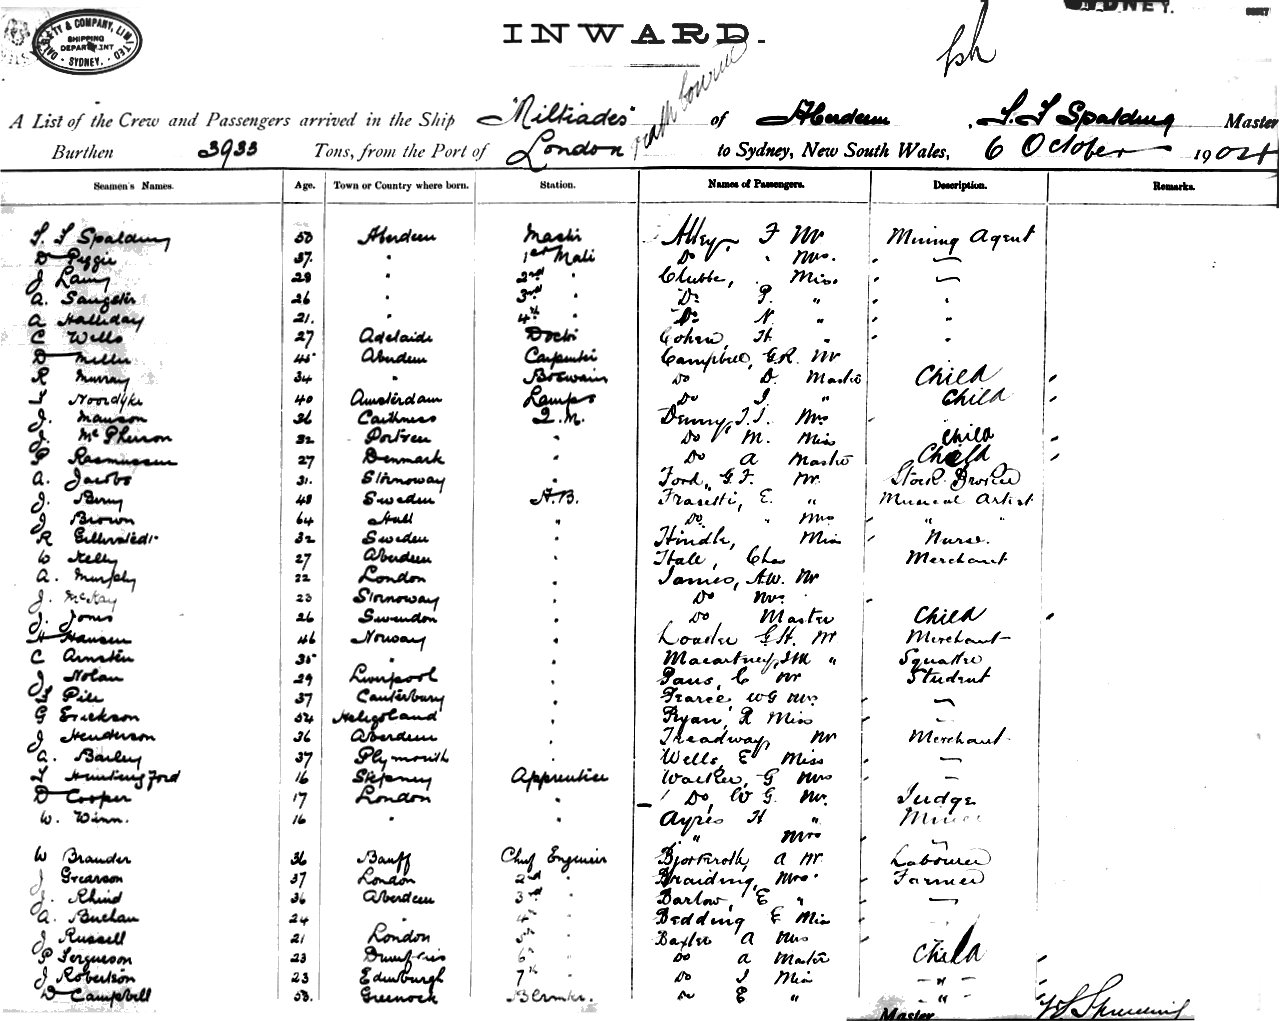 DALGETY & COMPANY, LIMITED
SHIPPING
DEPARTMENT
SYDNEY.
SYDNEY.
INWARD.
A List of the Crew and Passengers arrived in the Ship "Miltiades" of Aberdeen, S. S Spalding Master
Burthen 3933 Tons, from the Port of London to Sydney, New South Wales, 6 October 1904
Seamen's Names. Age. Town or Country where born. Station. Names of Passengers. Description. Remarks.
S. S Spalding 53 Aberdeen Master Alley, F Mr Mining Agent
D Peggie 37. " 1st Mate Do " Mrs.
J Lamy 29 " 2nd " Clubbe, Miss
A. 26 " 3rd " Do P. "
A Halliday 21. " 4th " Do N "
C Wells 27 Adelaide Doctor Cohen, H "
D Miller 45 Aberdeen Carpenter Campbell, G.R. Mr
R Murray 34 " Boswain Do D. Master Child
Noordyke 40 Amsterdam Lamps Do I. " Child
J. Manson 36 Caithness Q.M. Denny, Mrs
J. McPherson 32 Portree " Do M. Miss Child
P Rasmussen 27 Denmark " Do A Master Child
A. Jacobs 31. Stornoway " Ford, G.F. Mr. Stock Broker
J. Berry 48 Sweden A.B. Frasetti, E. " Musical Artist
J Brown 64 Hull " Do " Mrs " "
R 32 Sweden " Hindle, Miss Nurse.
W Kelly 27 Aberdeen " Hall, Chas Merchant
A. Murphy 22 London " James, A.W. Mr
J. McKay 23 Stornoway " Do Mrs
J. Jones 26 Swendon " Do Master Child
H Hansen 46 Norway " G.H. Mr Merchant
C Arnsten 35 " " Macartney, J.M " Squatter
J Nolan 29 Liverpool " C Mr Student
Pile 37 Canterbury " Pearce, W G Mrs
G Erickson 52 Heligoland " Ryan, R Miss
J Henderson 36 Aberdeen " Treadway, Mr Merchant
A. Bailey 37 Plymouth " Wells, E Miss
Huntingford 16 Stepney Apprentice Walker, G Mrs
D Cooper 17 London " Do, W G. Mr. Judge
W. Winn. 16 " " Ayres H " Miner
" Mrs
W Brander 36 Banff Chief Engineer A Mr Labourer
J Grearson 37 London 2nd " Braiding, Mrs Farmer
J. Rhind 36 Aberdeen 3rd " Barlow, E "
A. Buchan 24 " 4th " Bedding E Miss
J Russell 21 London 5th " Baxter A Mrs
P Ferguson 23 Dumfries 6th " Do A Master Child
J Robertson 23 Edinburgh 7th " Do J Miss "
D Campbell 53. Greenock Do E " "
Master